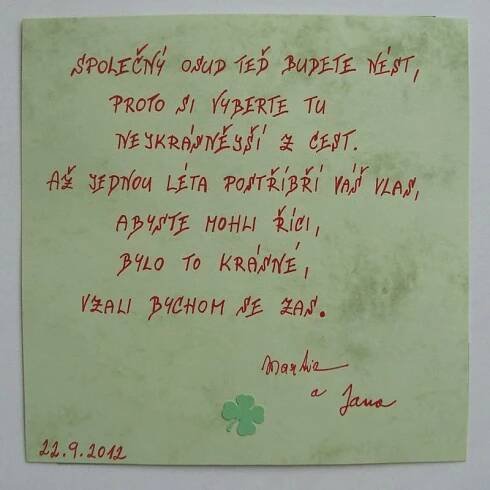 SPOLEČNÝ OSUD TEĎ BUDETE NÉST,
PROTO SI VYBERTE TU
NEJKRÁSNĚJŠÍ Z CEST.
AŽ JEDNOU LÉTA POSTŘÍBŘÍ VÁŠ VLAS,
ABYSTE MOHLI ŘÍCI,
BYLO TO KRÁSNÉ,
VZALI BYCHOM SE ZAS.
a
Jana
22.9.2012